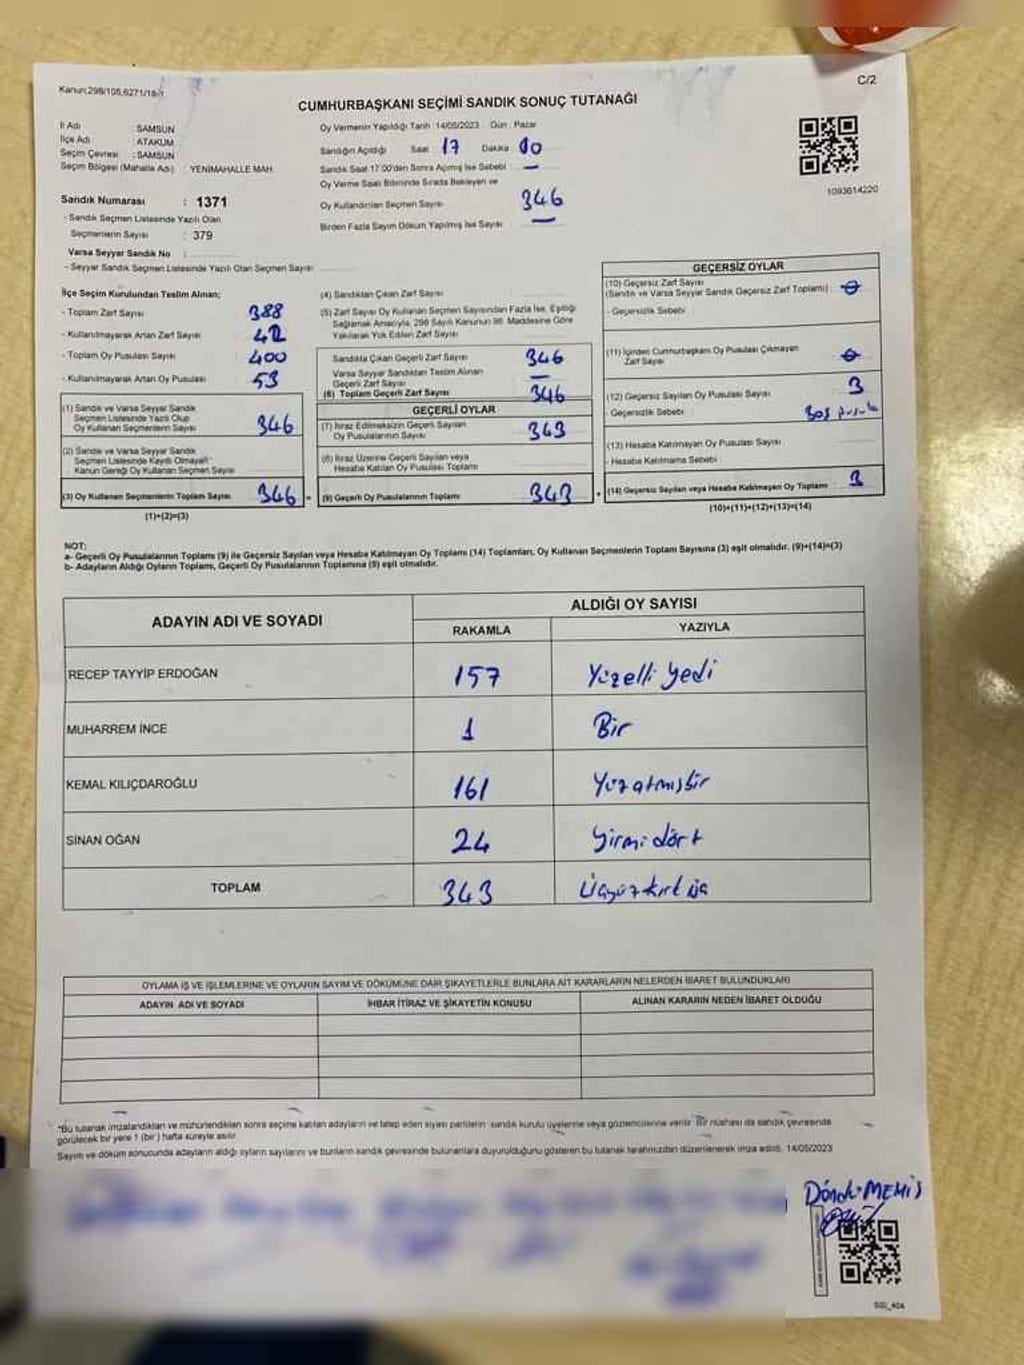 Kanun;298/105,6271/18-1
C/2
CUMHURBAŞKANI SEÇİMİ SANDIK SONUÇ TUTANAĞI
İl Adı : SAMSUN
İlçe Adı : ATAKUM
Seçim Çevresi : SAMSUN
Seçim Bölgesi (Mahalle Adı) : YENİMAHALLE MAH.
Sandık Numarası : 1371
- Sandık Seçmen Listesinde Yazılı Olan
Seçmenlerin Sayısı : 379
Varsa Seyyar Sandık No :
- Seyyar Sandık Seçmen Listesinde Yazılı Olan Seçmen Sayısı :
Oy Vermenin Yapıldığı Tarih : 14/05/2023 Gün : Pazar
Sandığın Açıldığı Saat 17 Dakika 00
Sandık Saat 17:00'den Sonra Açılmış İse Sebebi : —
Oy Verme Saati Bitiminde Sırada Bekleyen ve
Oy Kullandırılan Seçmen Sayısı 346
Birden Fazla Sayım Döküm Yapılmış İse Sayısı : —
1093614220
İlçe Seçim Kurulundan Teslim Alınan;
- Toplam Zarf Sayısı 388
- Kullanılmayarak Artan Zarf Sayısı 42
- Toplam Oy Pusulası Sayısı 400
- Kullanılmayarak Artan Oy Pusulası 53
(1) Sandık ve Varsa Seyyar Sandık
Seçmen Listesinde Yazılı Olup
Oy Kullanan Seçmenlerin Sayısı 346
(2) Sandık ve Varsa Seyyar Sandık
Seçmen Listesinde Kaydı Olmayan
Kanun Gereği Oy Kullanan Seçmen Sayısı
(3) Oy Kullanan Seçmenlerin Toplam Sayısı 346 =
(1)+(2)=(3)
(4) Sandıktan Çıkan Zarf Sayısı
(5) Zarf Sayısı Oy Kullanan Seçmen Sayısından Fazla İse, Eşitliği
Sağlamak Amacıyla, 298 Sayılı Kanunun 98. Maddesine Göre
Yakılarak Yok Edilen Zarf Sayısı
Sandıkta Çıkan Geçerli Zarf Sayısı 346
Varsa Seyyar Sandıktan Teslim Alınan
Geçerli Zarf Sayısı —
(6) Toplam Geçerli Zarf Sayısı 346
GEÇERLİ OYLAR
(7) İtiraz Edilmeksizin Geçerli Sayılan
Oy Pusulalarının Sayısı 343
(8) İtiraz Üzerine Geçerli Sayılan veya
Hesaba Katılan Oy Pusulası Toplamı
(9) Geçerli Oy Pusulalarının Toplamı 343 +
GEÇERSİZ OYLAR
(10) Geçersiz Zarf Sayısı
(Sandık ve Varsa Seyyar Sandık Geçersiz Zarf Toplamı) : 0
- Geçersizlik Sebebi :
(11) İçinden Cumhurbaşkanı Oy Pusulası Çıkmayan
Zarf Sayısı 0
(12) Geçersiz Sayılan Oy Pusulası Sayısı 3
- Geçersizlik Sebebi : Boş pusula
(13) Hesaba Katılmayan Oy Pusulası Sayısı
- Hesaba Katılmama Sebebi :
(14) Geçersiz Sayılan veya Hesaba Katılmayan Oy Toplamı 3
(10)+(11)+(12)+(13)=(14)
NOT:
a- Geçerli Oy Pusulalarının Toplamı (9) ile Geçersiz Sayılan veya Hesaba Katılmayan Oy Toplamı (14) Toplamları, Oy Kullanan Seçmenlerin Toplam Sayısına (3) eşit olmalıdır. (9)+(14)=(3)
b- Adayların Aldığı Oyların Toplamı, Geçerli Oy Pusulalarının Toplamına (9) eşit olmalıdır.
ADAYIN ADI VE SOYADI ALDIĞI OY SAYISI
RAKAMLA YAZIYLA
RECEP TAYYİP ERDOĞAN 157 Yüzelli yedi
MUHARREM İNCE 1 Bir
KEMAL KILIÇDAROĞLU 161 Yüzatmışbir
SİNAN OĞAN 24 yirmi dört
TOPLAM 343 Üçyüzkırküç
OYLAMA İŞ VE İŞLEMLERİNE VE OYLARIN SAYIM VE DÖKÜMÜNE DAİR ŞİKAYETLERLE BUNLARA AİT KARARLARIN NELERDEN İBARET BULUNDUKLARI
ADAYIN ADI VE SOYADI İHBAR İTİRAZ VE ŞİKAYETİN KONUSU ALINAN KARARIN NEDEN İBARET OLDUĞU
*Bu tutanak imzalandıktan ve mühürlendikten sonra seçime katılan adayların ve talep eden siyasi partilerin sandık kurulu üyelerine veya gözlemcilerine verilir. Bir nüshası da sandık çevresinde
görülecek bir yere 1 (bir) hafta süreyle asılır.
Sayım ve döküm sonucunda adayların aldığı oyların sayılarını ve bunların sandık çevresinde bulunanlara duyurulduğunu gösteren bu tutanak tarafımızdan düzenlenerek imza edildi. 14/05/2023
MEMİŞ